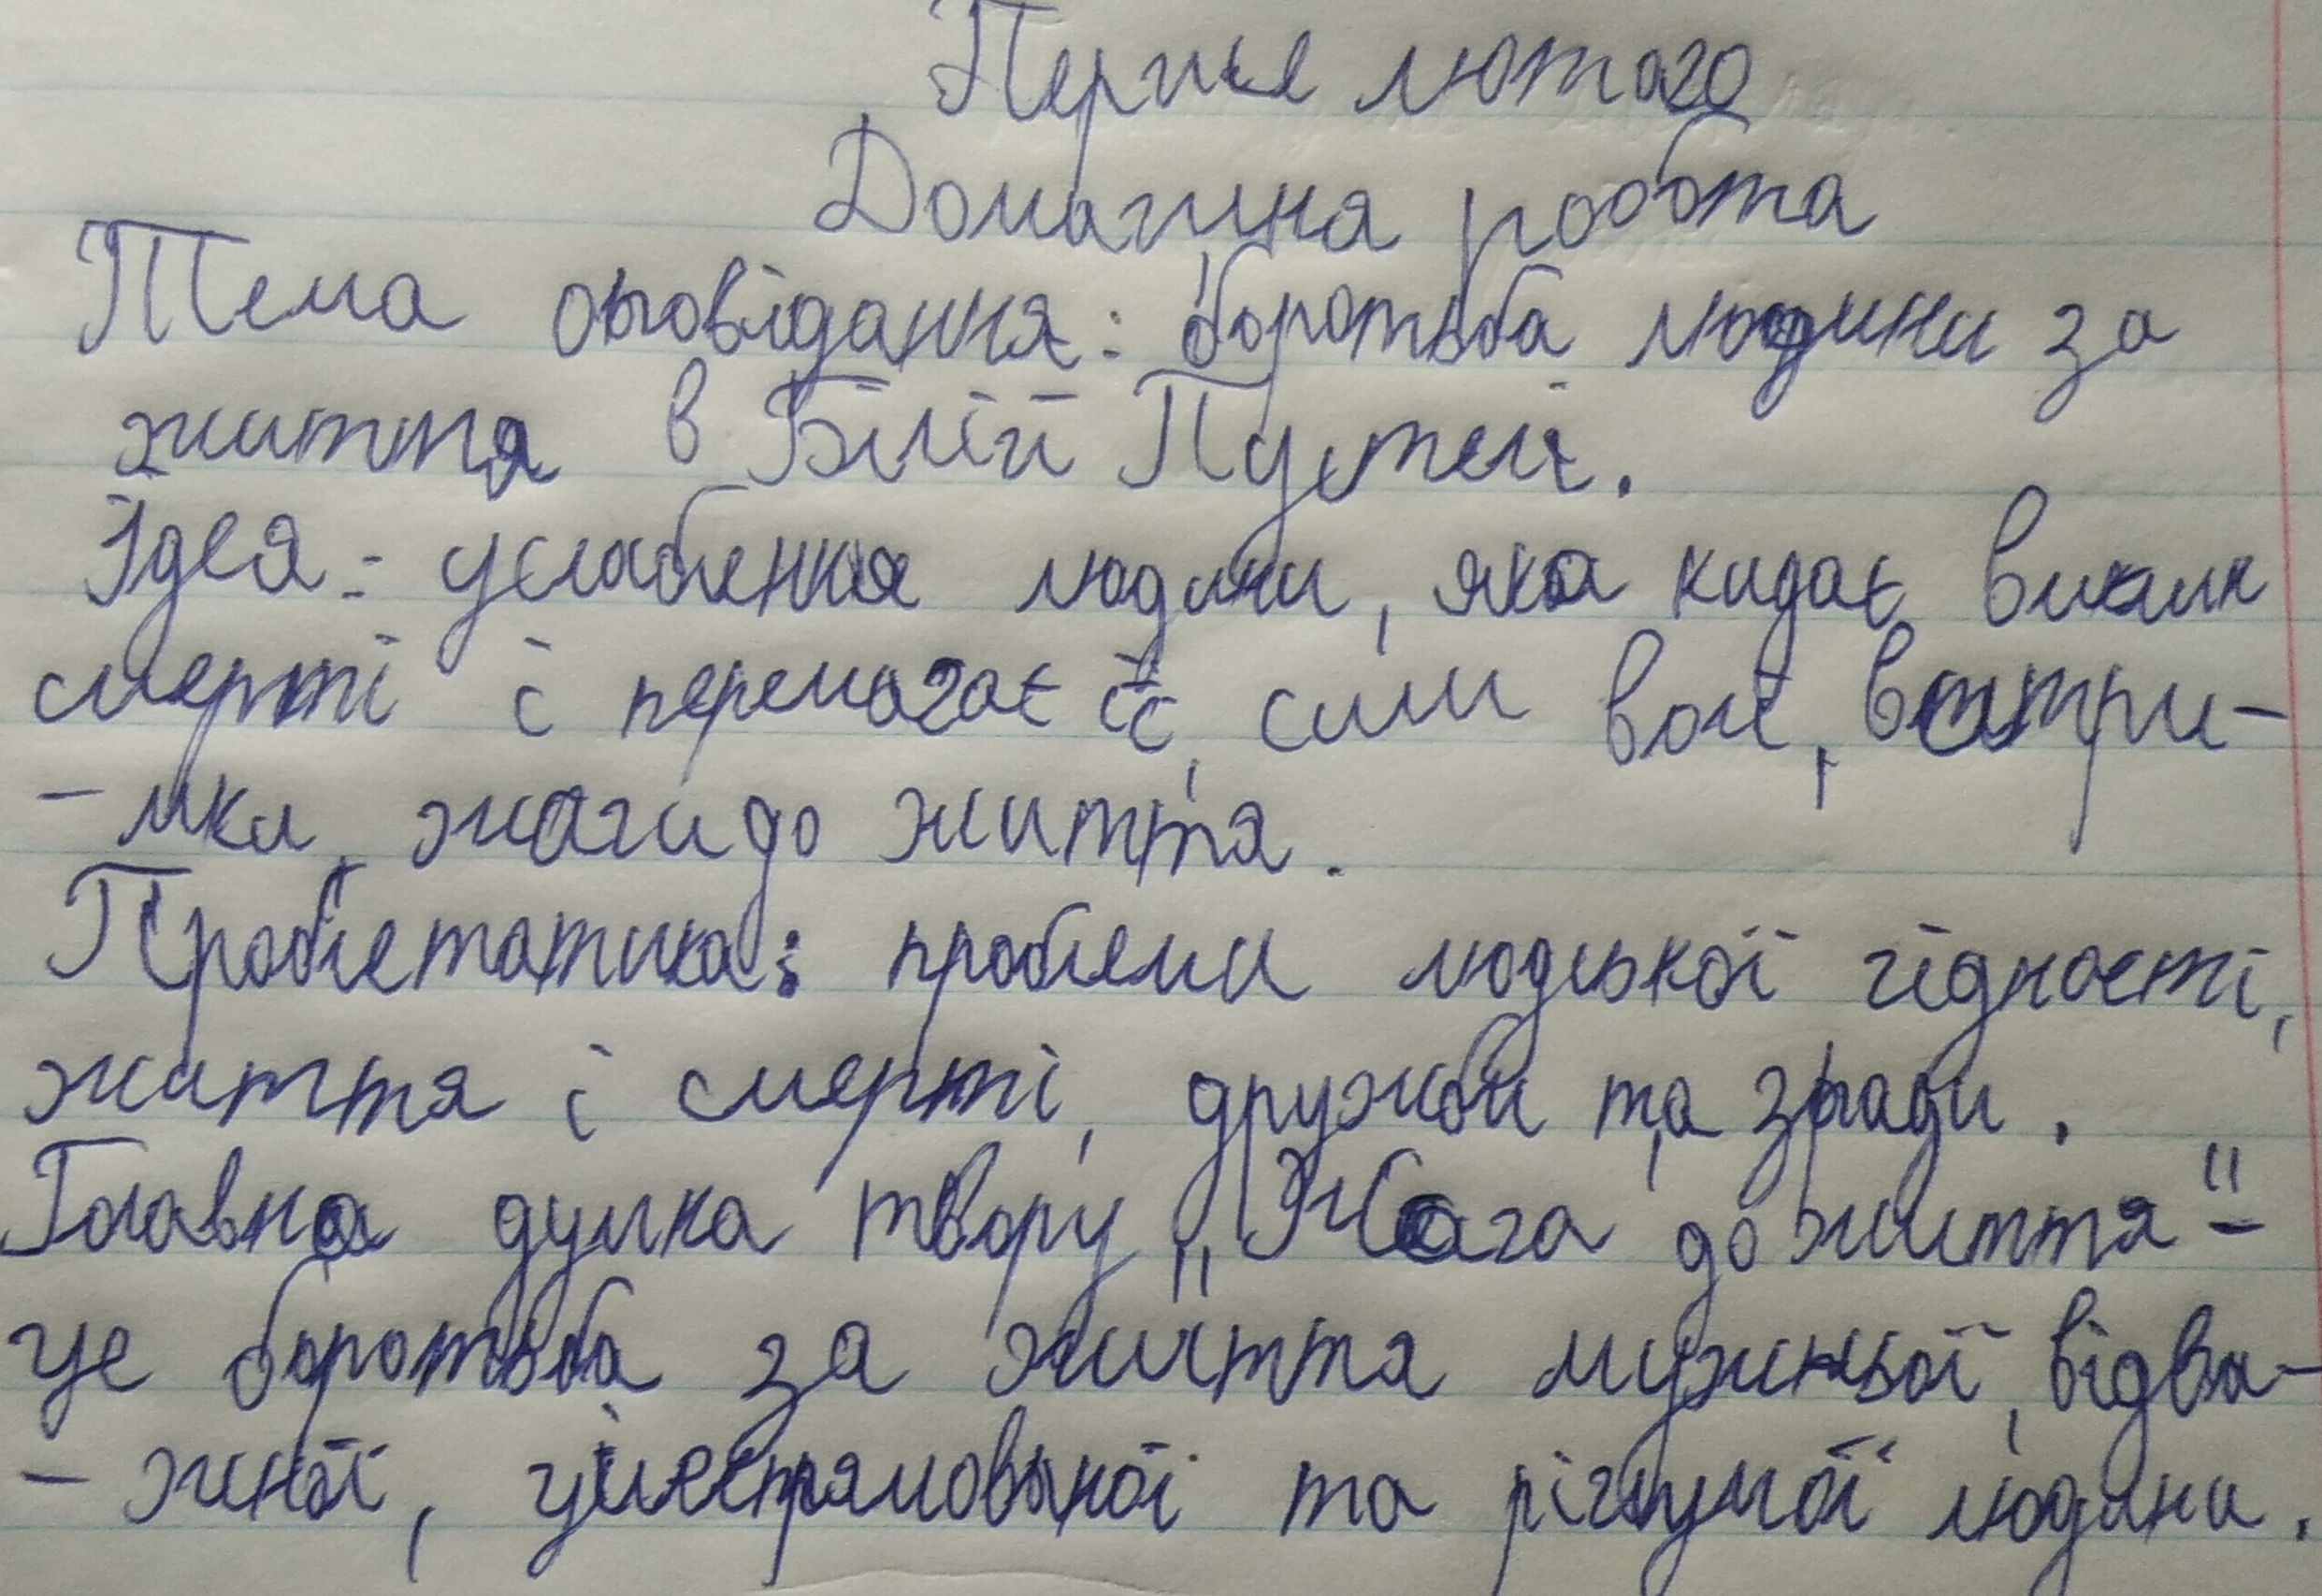 Перше лютого
Домашня робота
Тема оповідання: боротьба людини за
життя в Білій Пустелі.
Ідея: уславлення людини, яка кидає виклик
смерті і перемагає її, сили волі, витри-
-мки, жаги до життя.
Проблематика: проблеми людської гідності,
життя і смерті, дружби та зради.
Головна думка твору „Жага до життя" -
це боротьба за життя мужньої, відва-
-жної, цілеспрямованої та рішучої людини.